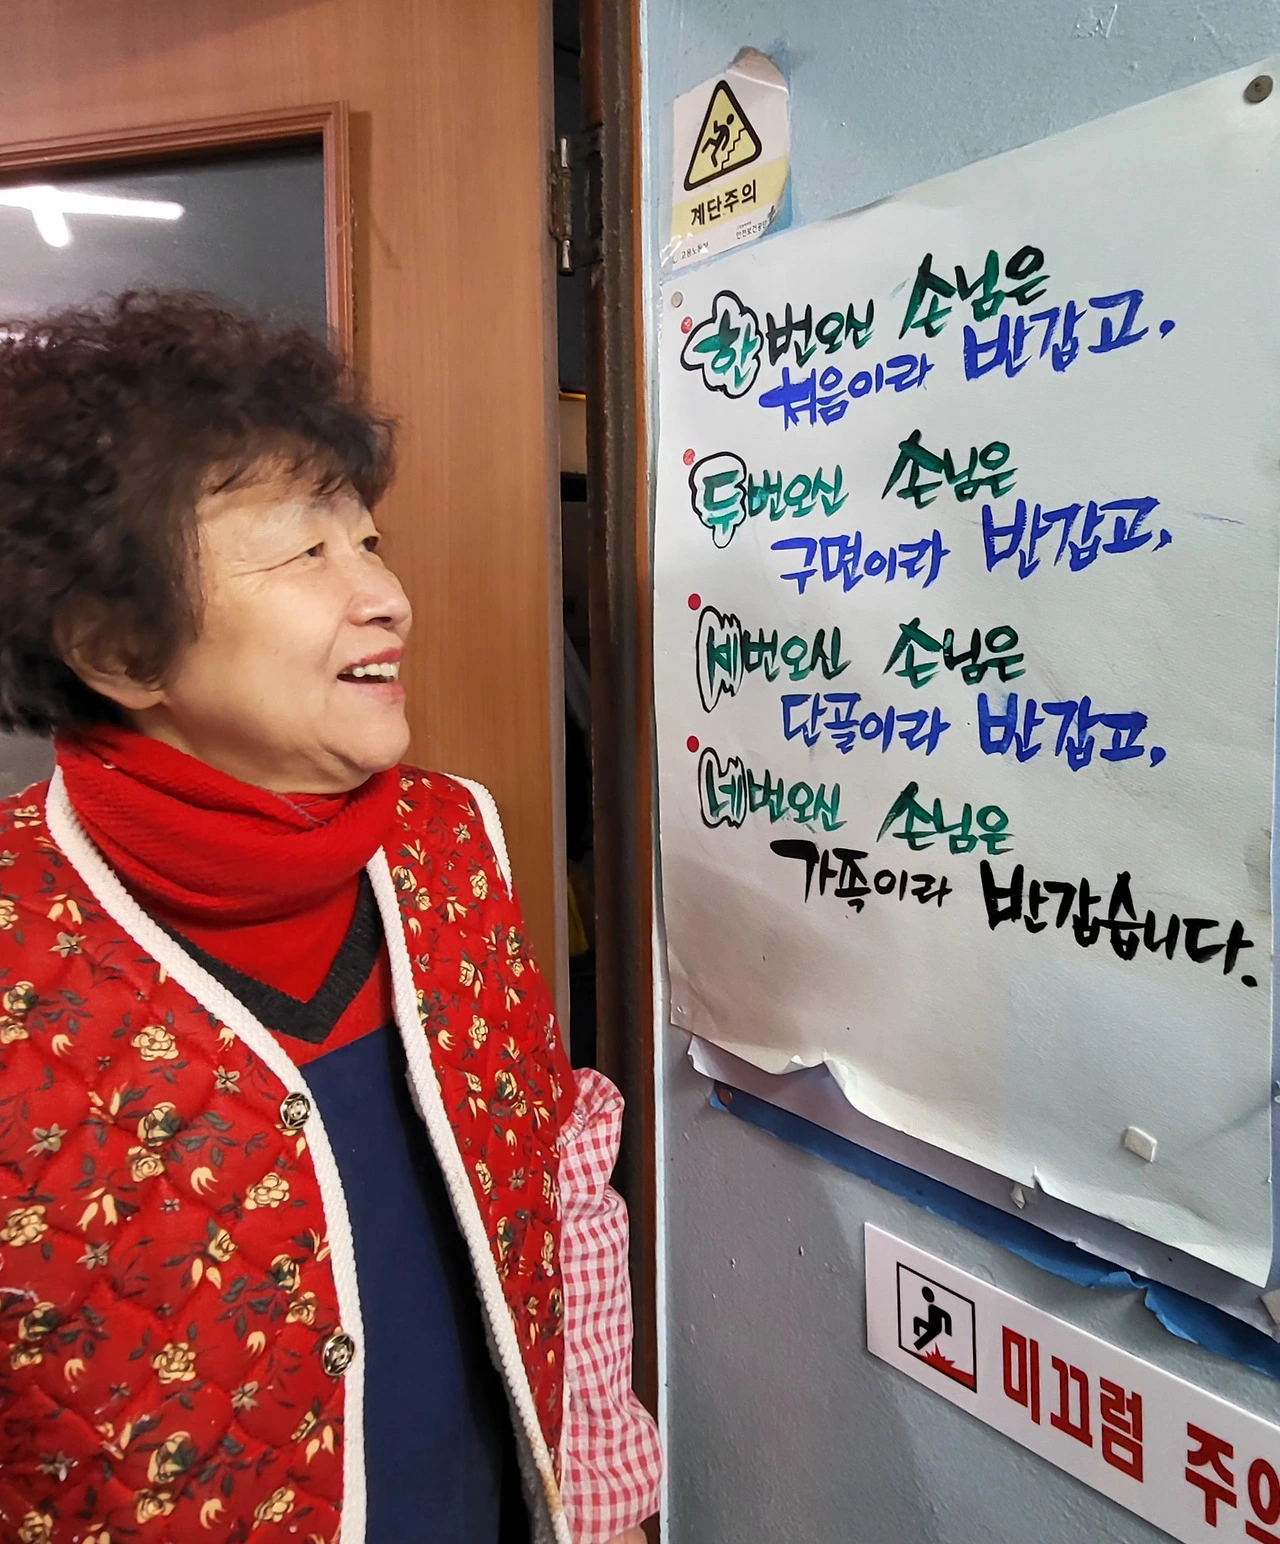 계단주의
고용노동부
안전보건공단
한번오신 손님은
처음이라 반갑고,
두번오신 손님은
구면이라 반갑고,
세번오신 손님은
단골이라 반갑고,
네번오신 손님은
가족이라 반갑습니다.
미끄럼 주의